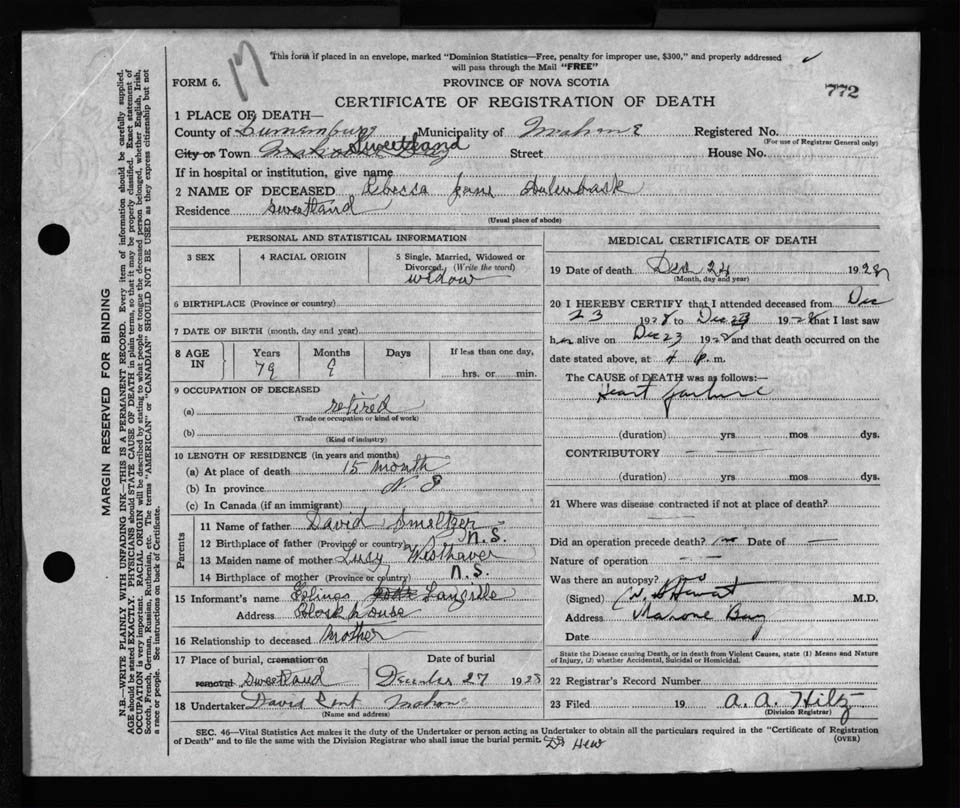 17
This form if placed in an envelope, marked "Dominion Statistics—Free, penalty for improper use, $300," and properly addressed
will pass through the Mail "FREE"
FORM 6.
PROVINCE OF NOVA SCOTIA
772
CERTIFICATE OF REGISTRATION OF DEATH
1 PLACE OF DEATH—
County of Lunenburg Municipality of Mahone Registered No.
(For use of Registrar General only)
City or Town Sweetland Street House No.
If in hospital or institution, give name
2 NAME OF DECEASED Rebecca Jane
Residence Sweetland
(Usual place of abode)
PERSONAL AND STATISTICAL INFORMATION
3 SEX
4 RACIAL ORIGIN
5 Single, Married, Widowed or Divorced. (Write the word)
widow
6 BIRTHPLACE (Province or country)
7 DATE OF BIRTH (month, day and year)
8 AGE IN
Years
79
Months
9
Days
If less than one day,
hrs. or min.
9 OCCUPATION OF DECEASED
(a) retired
(Trade or occupation or kind of work)
(b)
(Kind of industry)
10 LENGTH OF RESIDENCE (in years and months)
(a) At place of death 15 month
(b) In province N S
(c) In Canada (if an immigrant)
Parents
11 Name of father David Smeltzer
12 Birthplace of father (Province or country) N.S.
13 Maiden name of mother Lucy Westhaver
14 Birthplace of mother (Province or country) N.S.
15 Informant's name Langille
Address Block house
16 Relationship to deceased Mother
17 Place of burial, cremation or removal Sweetland
Date of burial
December 27 1928
18 Undertaker David Mahone
(Name and address)
MEDICAL CERTIFICATE OF DEATH
19 Date of death Dec 24 1928
(Month, day and year)
20 I HEREBY CERTIFY that I attended deceased from Dec
23 1928 to Dec 23 1928 that I last saw
her alive on Dec 23 1928 and that death occurred on the
date stated above, at 4 p.m.
The CAUSE of DEATH was as follows:—
Heart failure
(duration) yrs mos dys.
CONTRIBUTORY
(duration) yrs mos dys.
21 Where was disease contracted if not at place of death?
Did an operation precede death? no Date of
Nature of operation
Was there an autopsy? no
(Signed) M.D.
Address Mahone Bay
Date
State the Disease causing Death, or in death from Violent Causes, state (1) Means and Nature
of Injury, (2) whether Accidental, Suicidal or Homicidal.
22 Registrar's Record Number
23 Filed 19 A. A. Hiltz
(Division Registrar)
SEC. 46—Vital Statistics Act makes it the duty of the Undertaker or person acting as Undertaker to obtain all the particulars required in the "Certificate of Registration
of Death" and to file the same with the Division Registrar who shall issue the burial permit.
(OVER)
MARGIN RESERVED FOR BINDING
N.B.—WRITE PLAINLY WITH UNFADING INK—THIS IS A PERMANENT RECORD. Every item of information should be carefully supplied.
AGE should be stated EXACTLY. PHYSICIANS should STATE CAUSE OF DEATH in plain terms, so that it may be properly classified. Exact statement of
OCCUPATION is very important. RACIAL ORIGIN will be described by stating to what people or tongue the deceased person belonged, whether English, Irish,
Scotch, French, German, Russian, Ruthenian, etc. The terms "AMERICAN" or "CANADIAN" SHOULD NOT BE USED as they express citizenship but not
a race or people. See instructions on back of Certificate.